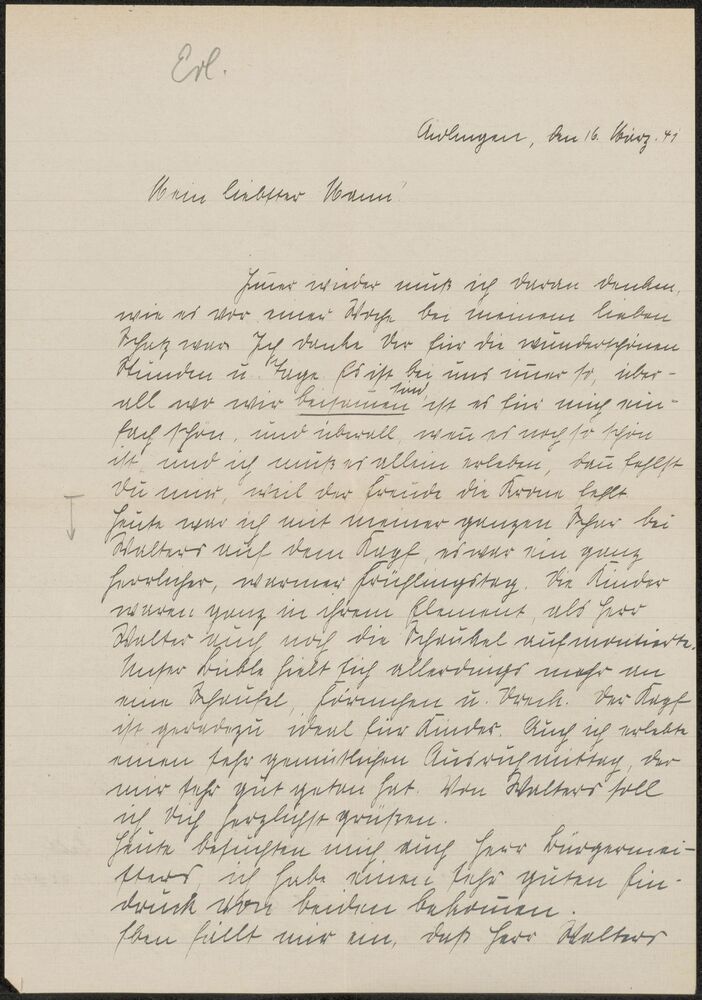 Erl.
Aidlingen, den 16. März. 41
Mein liebster Mann!
Immer wieder muß ich daran denken,
wie es vor einer Woche bei meinem lieben
Schatz war. Ich danke Dir für die wunderschönen
Stunden u. Tage. Es ist bei uns immer so, über-
all wo wir beisammen sind, ist es für mich ein-
fach schön, und überall, wenn es noch so schön
ist, und ich muß es allein erleben, dann fehlst
Du mir, weil der Freude die Krone fehlt.
Heute war ich mit meiner ganzen Schar bei
Walters auf dem Kapf, es war ein ganz
herrlicher, warmer Frühlingstag. Die Kinder
waren ganz in ihrem Element, als Herr
Walter auch noch die Schaukel aufmontierte.
Unser Büble hielt sich allerdings mehr an
eine Schaufel, Förmchen u. Dreck. Der Kapf
ist geradezu ideal für Kinder. Auch ich erlebte
einen sehr gemütlichen Ausruhmittag, der
mir sehr gut getan hat. Von Walters soll
ich Dich herzlichst grüßen.
Heute besuchten mich auch Herr Bürgermei-
sters, ich habe einen sehr guten Ein-
druck von beiden bekommen.
Eben fällt mir ein, daß Herr Walters